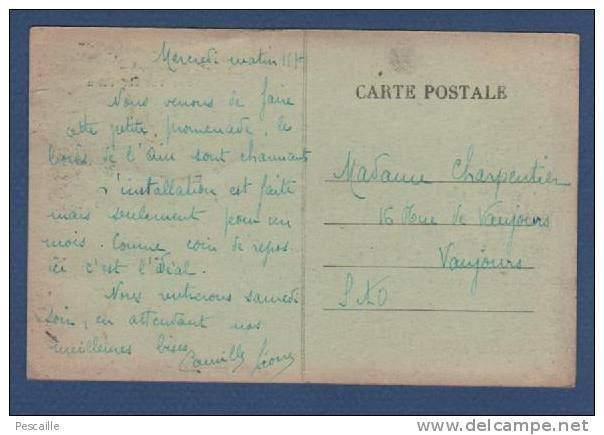 Mercredi matin
Nous venons de faire
cette petite promenade, le
bords de l'Ain sont charmants
L'installation est faite
mais seulement pour un
mois. Comme coin de repos
ici c'est l'idéal.
Nous rentrerons samedi
soir, en attendant nos
meilleures bises
Camille
CARTE POSTALE
Madame Charpentier
16 Rue de Vaujours
Vaujours
S&O
Pescaille
delcampe.net